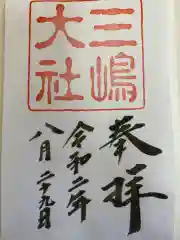 三嶋
大社
奉拝
令和二年
八月二十九日